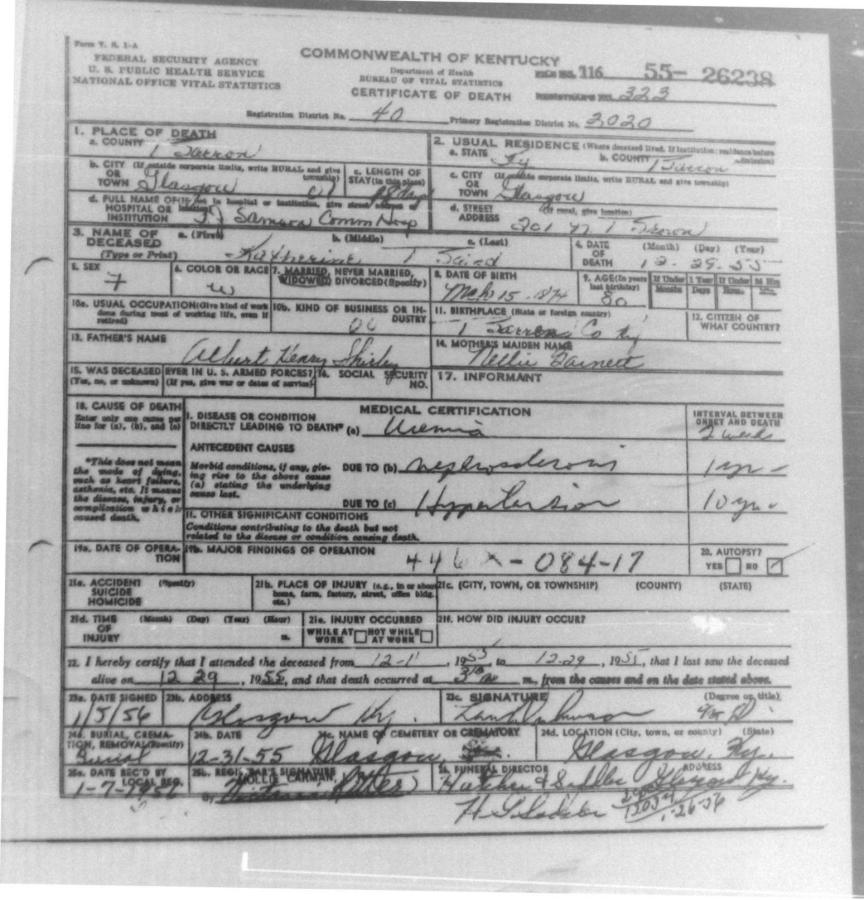 Form V. S. 1-A
FEDERAL SECURITY AGENCY
U. S. PUBLIC HEALTH SERVICE
NATIONAL OFFICE VITAL STATISTICS
COMMONWEALTH OF KENTUCKY
Department of Health
BUREAU OF VITAL STATISTICS
CERTIFICATE OF DEATH
FILE NO. 116 55- 26238
REGISTRAR'S NO. 323
Registration District No. 40 Primary Registration District No. 3020
1. PLACE OF DEATH
a. COUNTY Barron
b. CITY (If outside corporate limits, write RURAL and give township) OR TOWN Glasgow
c. LENGTH OF STAY (in this place)
d. FULL NAME OF (If not in hospital or institution, give street address or location) HOSPITAL OR INSTITUTION T J Samson Comm Hosp
2. USUAL RESIDENCE (Where deceased lived. If institution: residence before admission)
a. STATE Ky b. COUNTY Barron
c. CITY (If outside corporate limits, write RURAL and give township) OR TOWN Glasgow
d. STREET ADDRESS (If rural, give location) 201
3. NAME OF DECEASED (Type or Print) a. (First) b. (Middle) c. (Last) Katherine
4. DATE OF DEATH (Month) (Day) (Year) 12-29-55
5. SEX F
6. COLOR OR RACE W
7. MARRIED, NEVER MARRIED, WIDOWED, DIVORCED (Specify)
8. DATE OF BIRTH Mch 15-1874
9. AGE (In years last birthday) 80 If Under 1 Year Months Days If Under 24 Hrs. Hours Min.
10a. USUAL OCCUPATION (Give kind of work done during most of working life, even if retired)
10b. KIND OF BUSINESS OR INDUSTRY
11. BIRTHPLACE (State or foreign country) Barron Co Ky
12. CITIZEN OF WHAT COUNTRY?
13. FATHER'S NAME Albert Henry Shirley
14. MOTHER'S MAIDEN NAME Nellie Garnett
15. WAS DECEASED EVER IN U. S. ARMED FORCES? (Yes, no, or unknown) (If yes, give war or dates of service)
16. SOCIAL SECURITY NO.
17. INFORMANT
18. CAUSE OF DEATH
Enter only one cause per line for (a), (b), and (c)
MEDICAL CERTIFICATION
INTERVAL BETWEEN ONSET AND DEATH
I. DISEASE OR CONDITION DIRECTLY LEADING TO DEATH* (a) Uremia 2 weeks
*This does not mean the mode of dying, such as heart failure, asthenia, etc. It means the disease, injury, or complication which caused death.
ANTECEDENT CAUSES
Morbid conditions, if any, giving rise to the above cause (a) stating the underlying cause last.
DUE TO (b) nephrosclerosis 1 yr -
DUE TO (c) Hypertension 10 yr -
II. OTHER SIGNIFICANT CONDITIONS
Conditions contributing to the death but not related to the disease or condition causing death.
19a. DATE OF OPERATION
19b. MAJOR FINDINGS OF OPERATION
446X-084-17
20. AUTOPSY? YES NO
21a. ACCIDENT SUICIDE HOMICIDE (Specify)
21b. PLACE OF INJURY (e.g., in or about home, farm, factory, street, office bldg. etc.)
21c. (CITY, TOWN, OR TOWNSHIP) (COUNTY) (STATE)
21d. TIME OF INJURY (Month) (Day) (Year) (Hour) m.
21e. INJURY OCCURRED WHILE AT WORK NOT WHILE AT WORK
21f. HOW DID INJURY OCCUR?
22. I hereby certify that I attended the deceased from 12-1, 1955 to 12-29, 1955, that I last saw the deceased
alive on 12 29, 1955, and that death occurred at m., from the causes and on the date stated above.
23a. DATE SIGNED 1/5/56
23b. ADDRESS Glasgow Ky.
23c. SIGNATURE (Degree or title)
24a. BURIAL, CREMATION, REMOVAL (Specify) Burial
24b. DATE 12-31-55
24c. NAME OF CEMETERY OR CREMATORY Glasgow
24d. LOCATION (City, town, or county) (State) Glasgow, Ky.
25a. DATE REC'D BY LOCAL REG.
25b. REGISTRAR'S SIGNATURE
26. FUNERAL DIRECTOR ADDRESS Hatcher & Saddler Glasgow Ky.
1-26-56